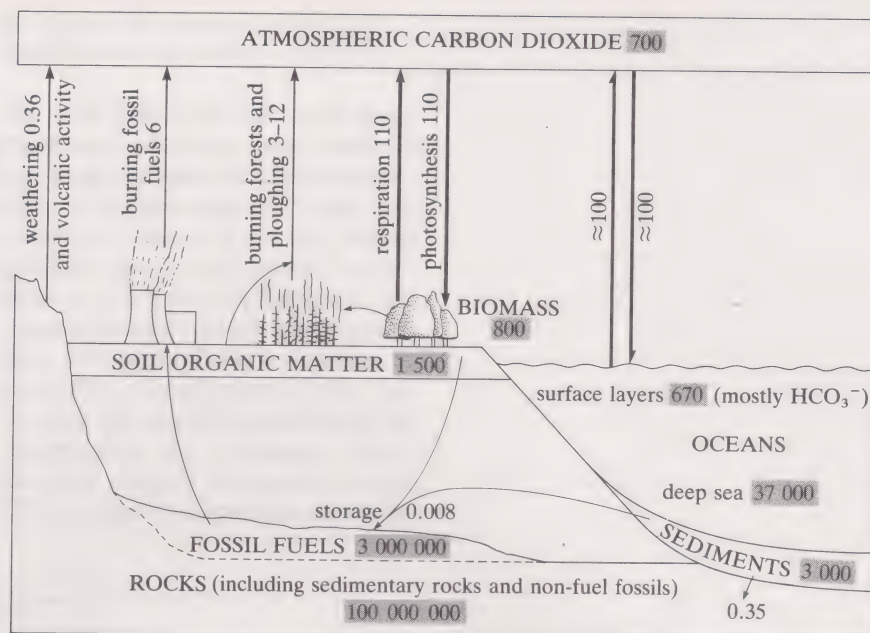 ATMOSPHERIC CARBON DIOXIDE 700
weathering 0.36
and volcanic activity
burning fossil
fuels 6
burning forests and
ploughing 3–12
respiration 110
photosynthesis 110
≈100
≈100
BIOMASS
800
SOIL ORGANIC MATTER 1 500
surface layers 670 (mostly HCO₃⁻)
OCEANS
deep sea 37 000
storage 0.008
FOSSIL FUELS 3 000 000
SEDIMENTS 3 000
ROCKS (including sedimentary rocks and non-fuel fossils)
100 000 000
0.35